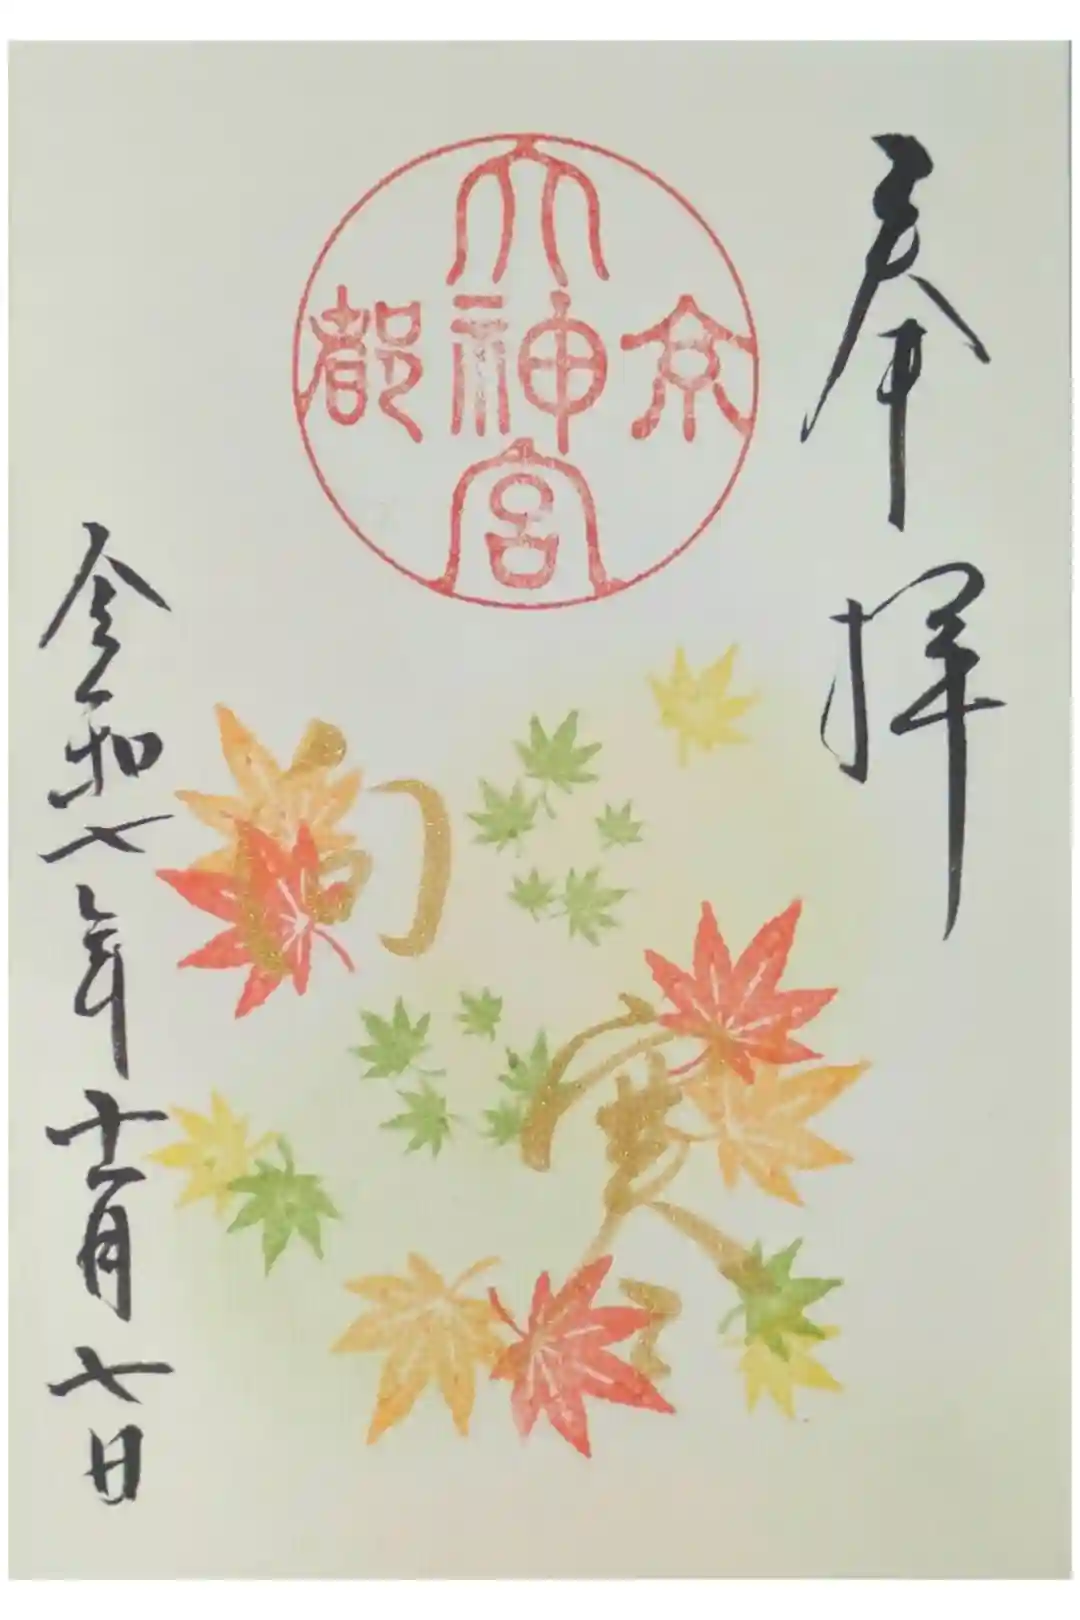 奉拝
京都
大神宮
向寒
令和七年十一月七日